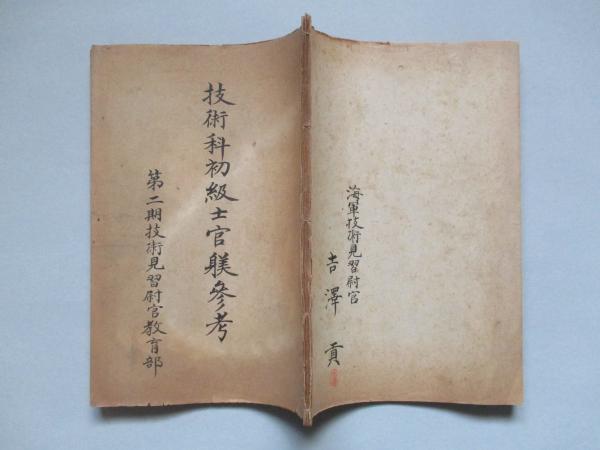 技術科初級士官躾参考
第二期技術見習尉官教育部
海軍技術見習尉官
吉澤貢